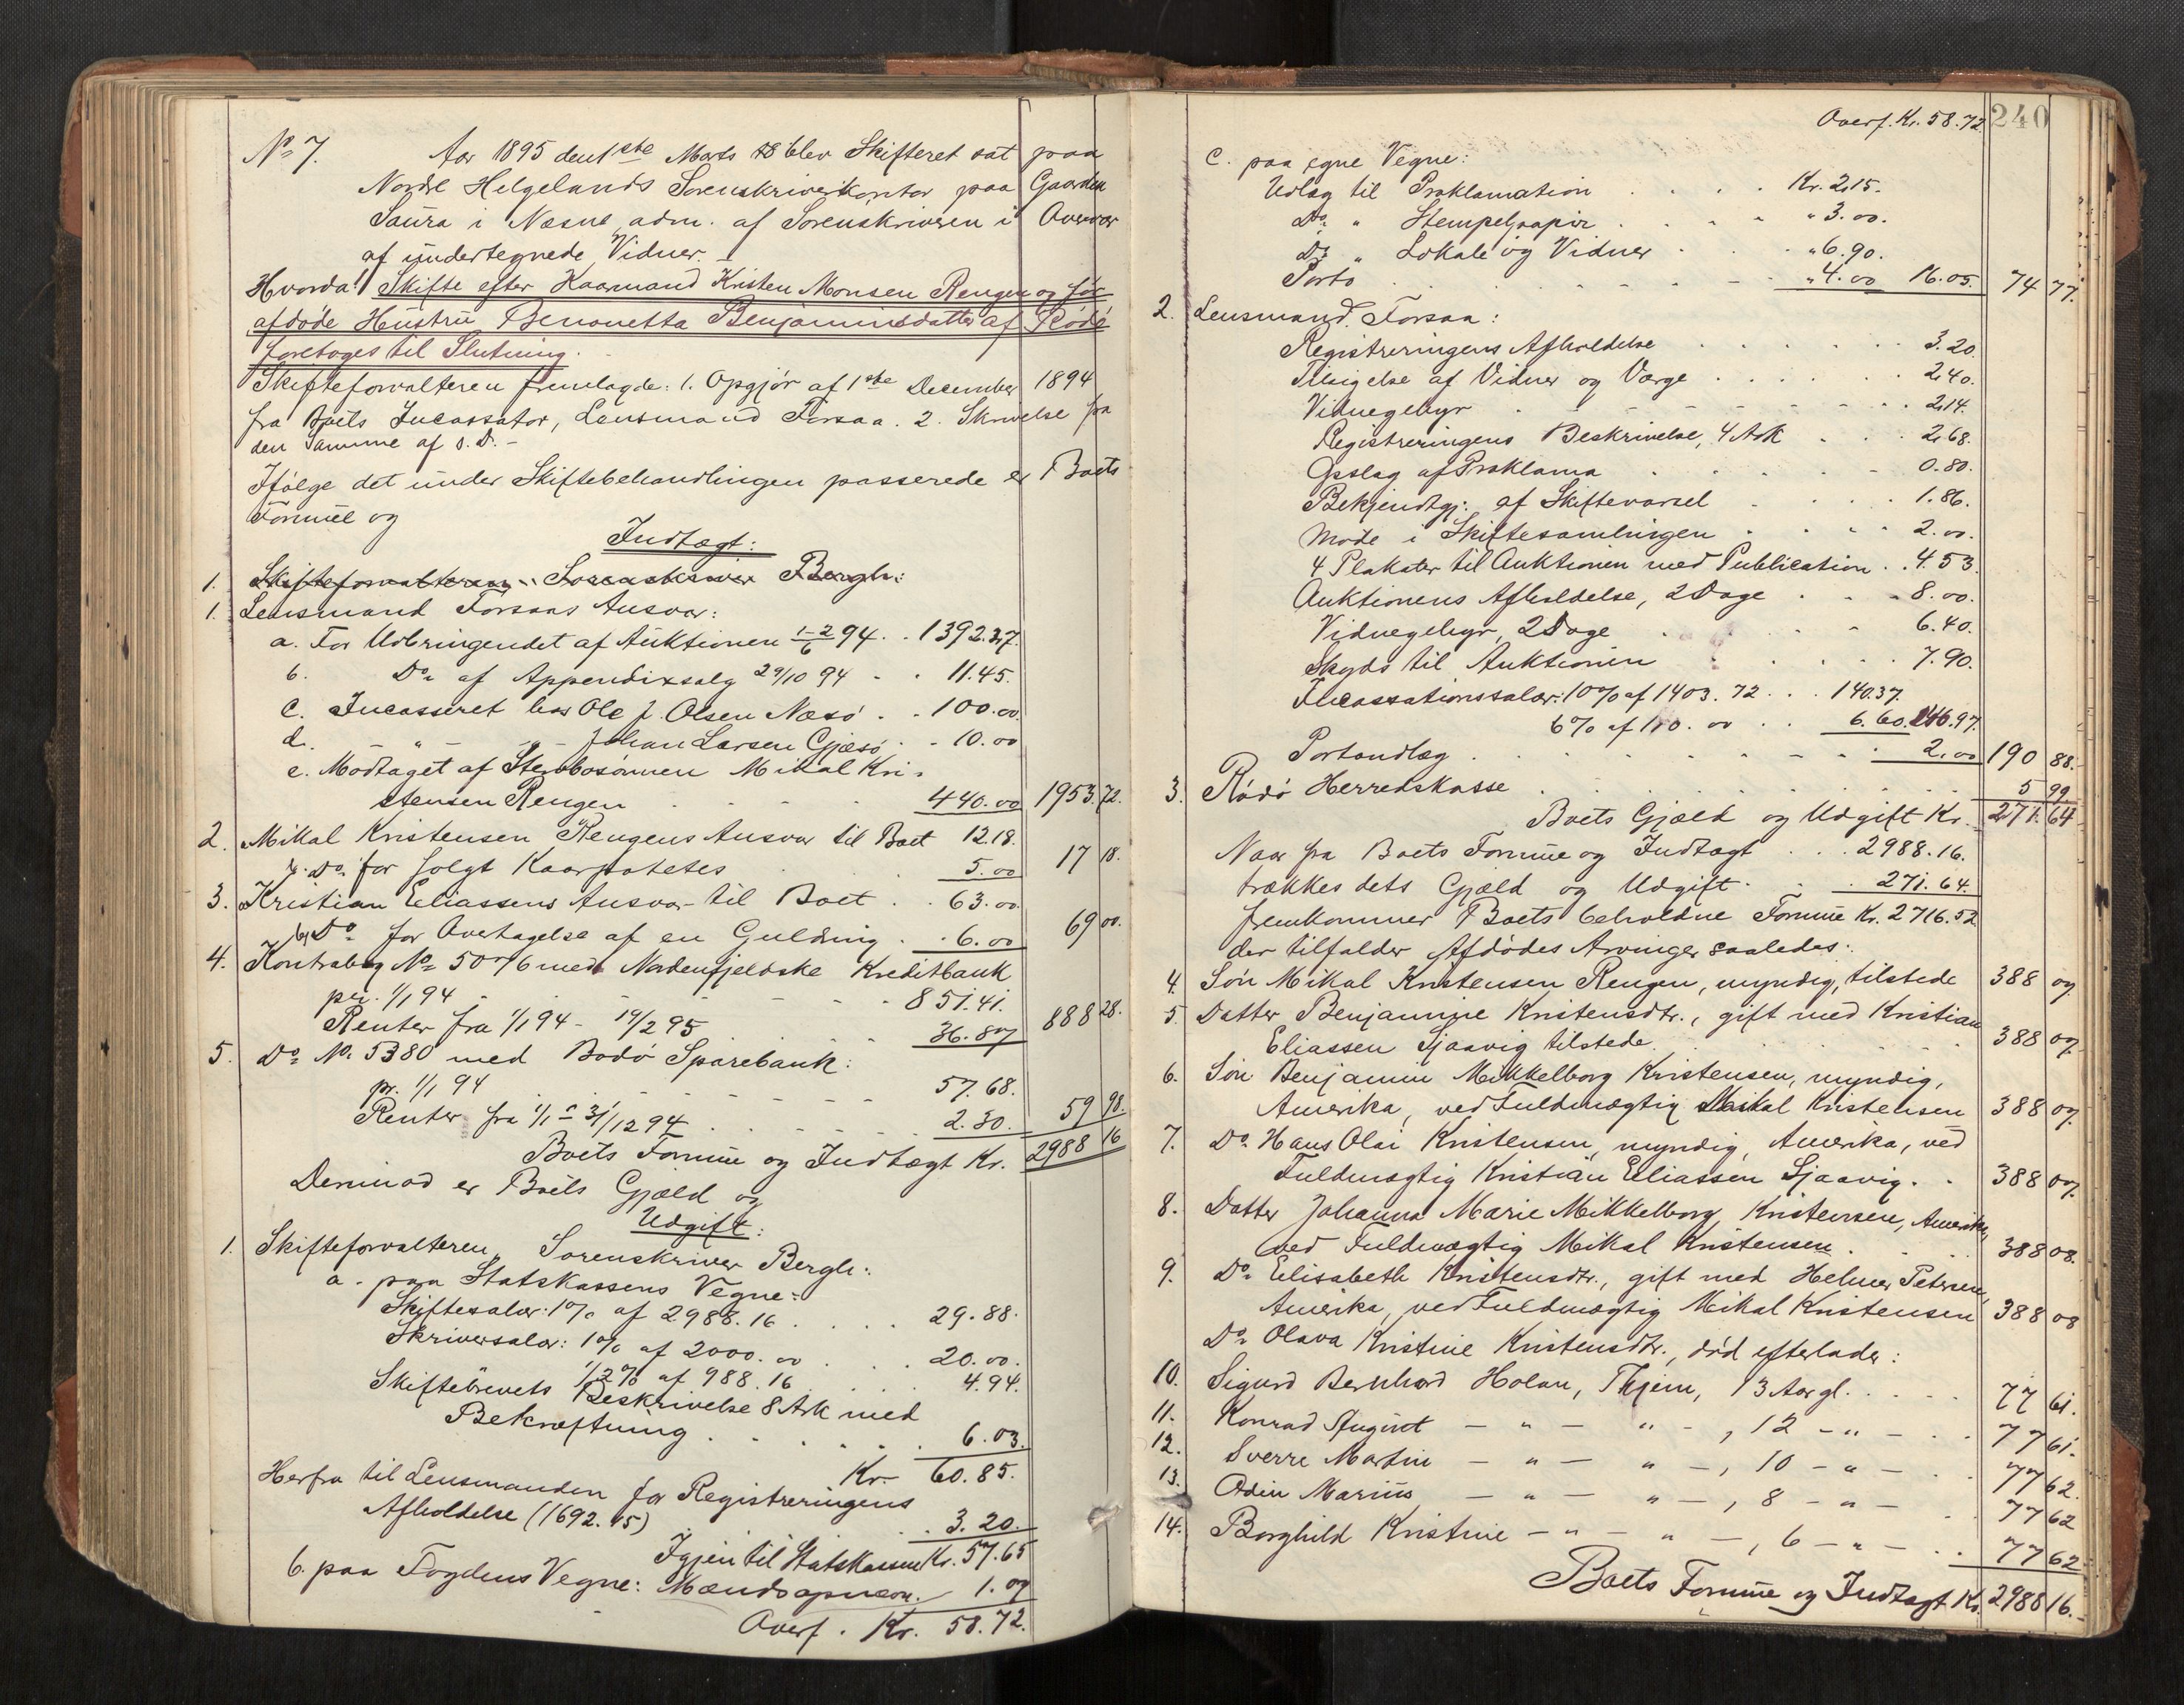 No 7. Aar 1895 den 1ste Marts blev Skifteret sat paa
Nordre Helgelands Sorenskriverkontor paa Gaarden
Saura i Nesne, adm. af Sorenskriveren i Overvær
af undertegnede Vidner. -
Hvorda! Skifte efter Kaarmand Kristen Monsen Rengen og før
afdøde Hustru Benonetta Benjaminsdatter af Rødø
foretoges til Slutning.
Skifteforvalteren fremlagde: 1. Opgjør af 1ste December 1894
fra Boets Incassator, Lensmand Forsaa. 2. Skrivelse fra
den Samme af s. D. -
Ifølge det under Skiftebehandlingen passerede er Boets
Formue og
Indtægt:
1. Skifteforvalteren, Sorenskriver Bergh:
1. Lensmand Forsaas Ansvar:
a. For Udbringendet af Auktionen 1-2/6 94 . . 1392.27.
b. Do af Appendixsalg 29/10 94 - . 11.45.
c. Incasseret hos Ole J. Olsen Næsø . . 100.00
d. - " - " - Johan Larsen Gjæsø . - 10.00
e. Modtaget af Sterbosønnen Mikal Kri-
stensen Rengen . . . 440.00 1953.72.
2. Mikal Kristensen Rengens Ansvar til Boet 12.18.
Do for solgt Kaarpotetes 5.00 17 18.
3. Kristian Eliassens Ansvar til Boet . . 63.00
Do for Overtagelse af en Guldring . . 6.00 69 00.
4. Kontrabog No 5076 med Nordenfjeldske Kreditbank
pr. 1/1 94 - - - - - 851.41.
Renter fra 1/1 94 - 19/2 95 . 36.87 888 28.
5. Do No. 5380 med Bodø Sparebank:
pr. 1/1 94 . - - - - - 57.68.
Renter fra 1/1 - 31/12 94 . . . 2.30. 59 98.
Boets Formue og Indtægt Kr. 2988 16
Derimod er Boets Gjæld og
Udgift:
1. Skifteforvalteren, Sorenskriver Bergh:
a. paa Statskassens Vegne:
Skiftesalær: 1% af 2988.16 . . . . 29.88.
Skriversalær: 1% af 2000.00 . . . 20.00.
1/2% af 988.16 . . . 4.94.
Skiftebrevets Beskrivelse 8 Ark med
Bekræftning . . . . . . 6.03.
Kr. 60.85.
Herfra til Lensmanden for Registreringens
Afholdelse (1692.15) . . 3.20.
Igjen til Statskassen Kr. 57.65
b. paa Fogdens Vegne: Mændsopnævn. 1.07
Overf. Kr. 58.72.
240
Overf. Kr. 58.72
c. paa egne Vegne:
Udlæg til Proklamation . . . . Kr. 2.15.
Do " Stempelpapir . . . . " 3.00.
Do " Lokale og Vidner . . . " 6.90.
Porto . . . . . . " 4.00 16.05. 74 77.
2. Lensmand Forsaa:
Registreringens Afholdelse . . . . . . 3.20.
Tilsigelse af Vidner og Værge . . . . . . 2.40.
Vidnegebyr . - - - - - - . . 2.14.
Registreringens Beskrivelse, 4 Ark . . . 2.68.
Opslag af Proklama . . . . . - 0.80.
Bekjendtgj: af Skiftevarsel . . . . 1.86.
Møde i Skiftesamlingen . . . . 2.00.
4 Plakater til Auktionen med Publication . . 4.53.
Auktionens Afholdelse, 2 Dage . . . 8.00.
Vidnegebyr, 2 Dage . . . . 6.40.
Skyds til Auktionen . . . . 7.90.
Incassationssalær: 10% af 1403.72 . . . 140.37.
6% af 110.00 . . 6.60. 146.97.
Portoudlæg . . . . . . . 2.00 190 88.
3. Rødø Herredskasse . . . . . . . 5 99
Boets Gjæld og Udgift Kr. 271.64
Naar fra Boets Formue og Indtægt . . . 2988.16.
trækkes dets Gjæld og Udgift . . . 271.64.
fremkommer Boets beholdne Formue Kr. 2716.52
der tilfalder Afdødes Arvinger saaledes:
4. Søn Mikal Kristensen Rengen, myndig, tilstede 388 07.
5. Datter Benjamine Kristensdtr., gift med Kristian
Eliassen Sjaavig tilstede. . . . . . 388 07.
6. Søn Benjamin Mikkelborg Kristensen, myndig,
Amerika, ved Fuldmægtig Mikal Kristensen 388 07.
7. Do Hans Olai Kristensen, myndig, Amerika, ved
Fuldmægtig Kristian Eliassen Sjaavig . . 388 07.
8. Datter Johanna Marie Mikkelborg Kristensen, Amerika,
ved Fuldmægtig Mikal Kristensen . . . 388 08.
9. Do Elisabeth Kristensdtr., gift med Helmer Petersen,
Amerika, ved Fuldmægtig Mikal Kristensen 388 08
Do Olava Kristine Kristensdtr., død efterlader:
10. Sigurd Bernhard Holan, Thjem, 13 Aar gl. . . . . 77 61.
11. Konrad August - " - " - , 12 - " - . . 77 61.
12. Sverre Martin - " - " - , 10 - " - . . 77 62.
13. Odin Marius, - " - " - , 8 - " - . 77 62
14. Borghild Kristine - " - " - , 6 - " - . . 77 62
Boets Formue og Indtægt Kr. 2988 16.